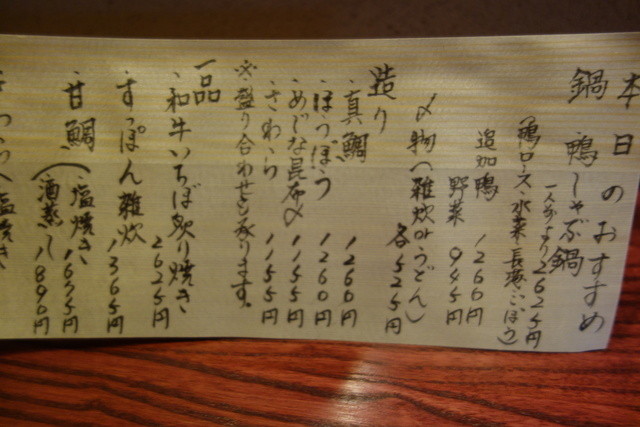 本日のおすすめ
鍋 鴨しゃぶ鍋
一人前より2625円
(鴨ロース・水菜・長葱・ごぼう)
追加鴨 1260円
野菜 945円
〆物(雑炊orうどん) 各525円
造り
・真鯛 1260円
・ほうぼう 1260円
・めじな昆布〆 1155円
・さわら 1155円
※盛り合わせも承ります。
一品
・和牛いちぼ炙り焼き 2625円
・すっぽん雑炊 1365円
・甘鯛(塩焼き 1655円
(酒蒸し 1890円
塩焼き